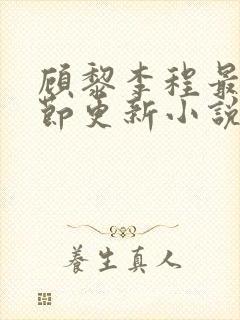 顾黎李程最
节更新小說
養生真人